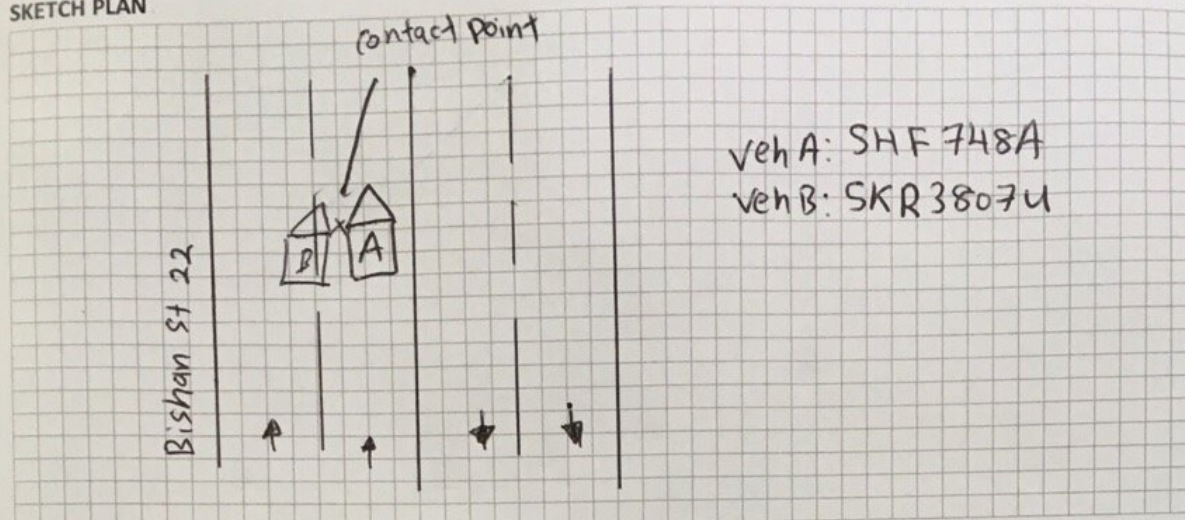 SKETCH PLAN
contact point
veh A: SHF 748A
veh B: SKR3807U
B
A
Bishan St 22